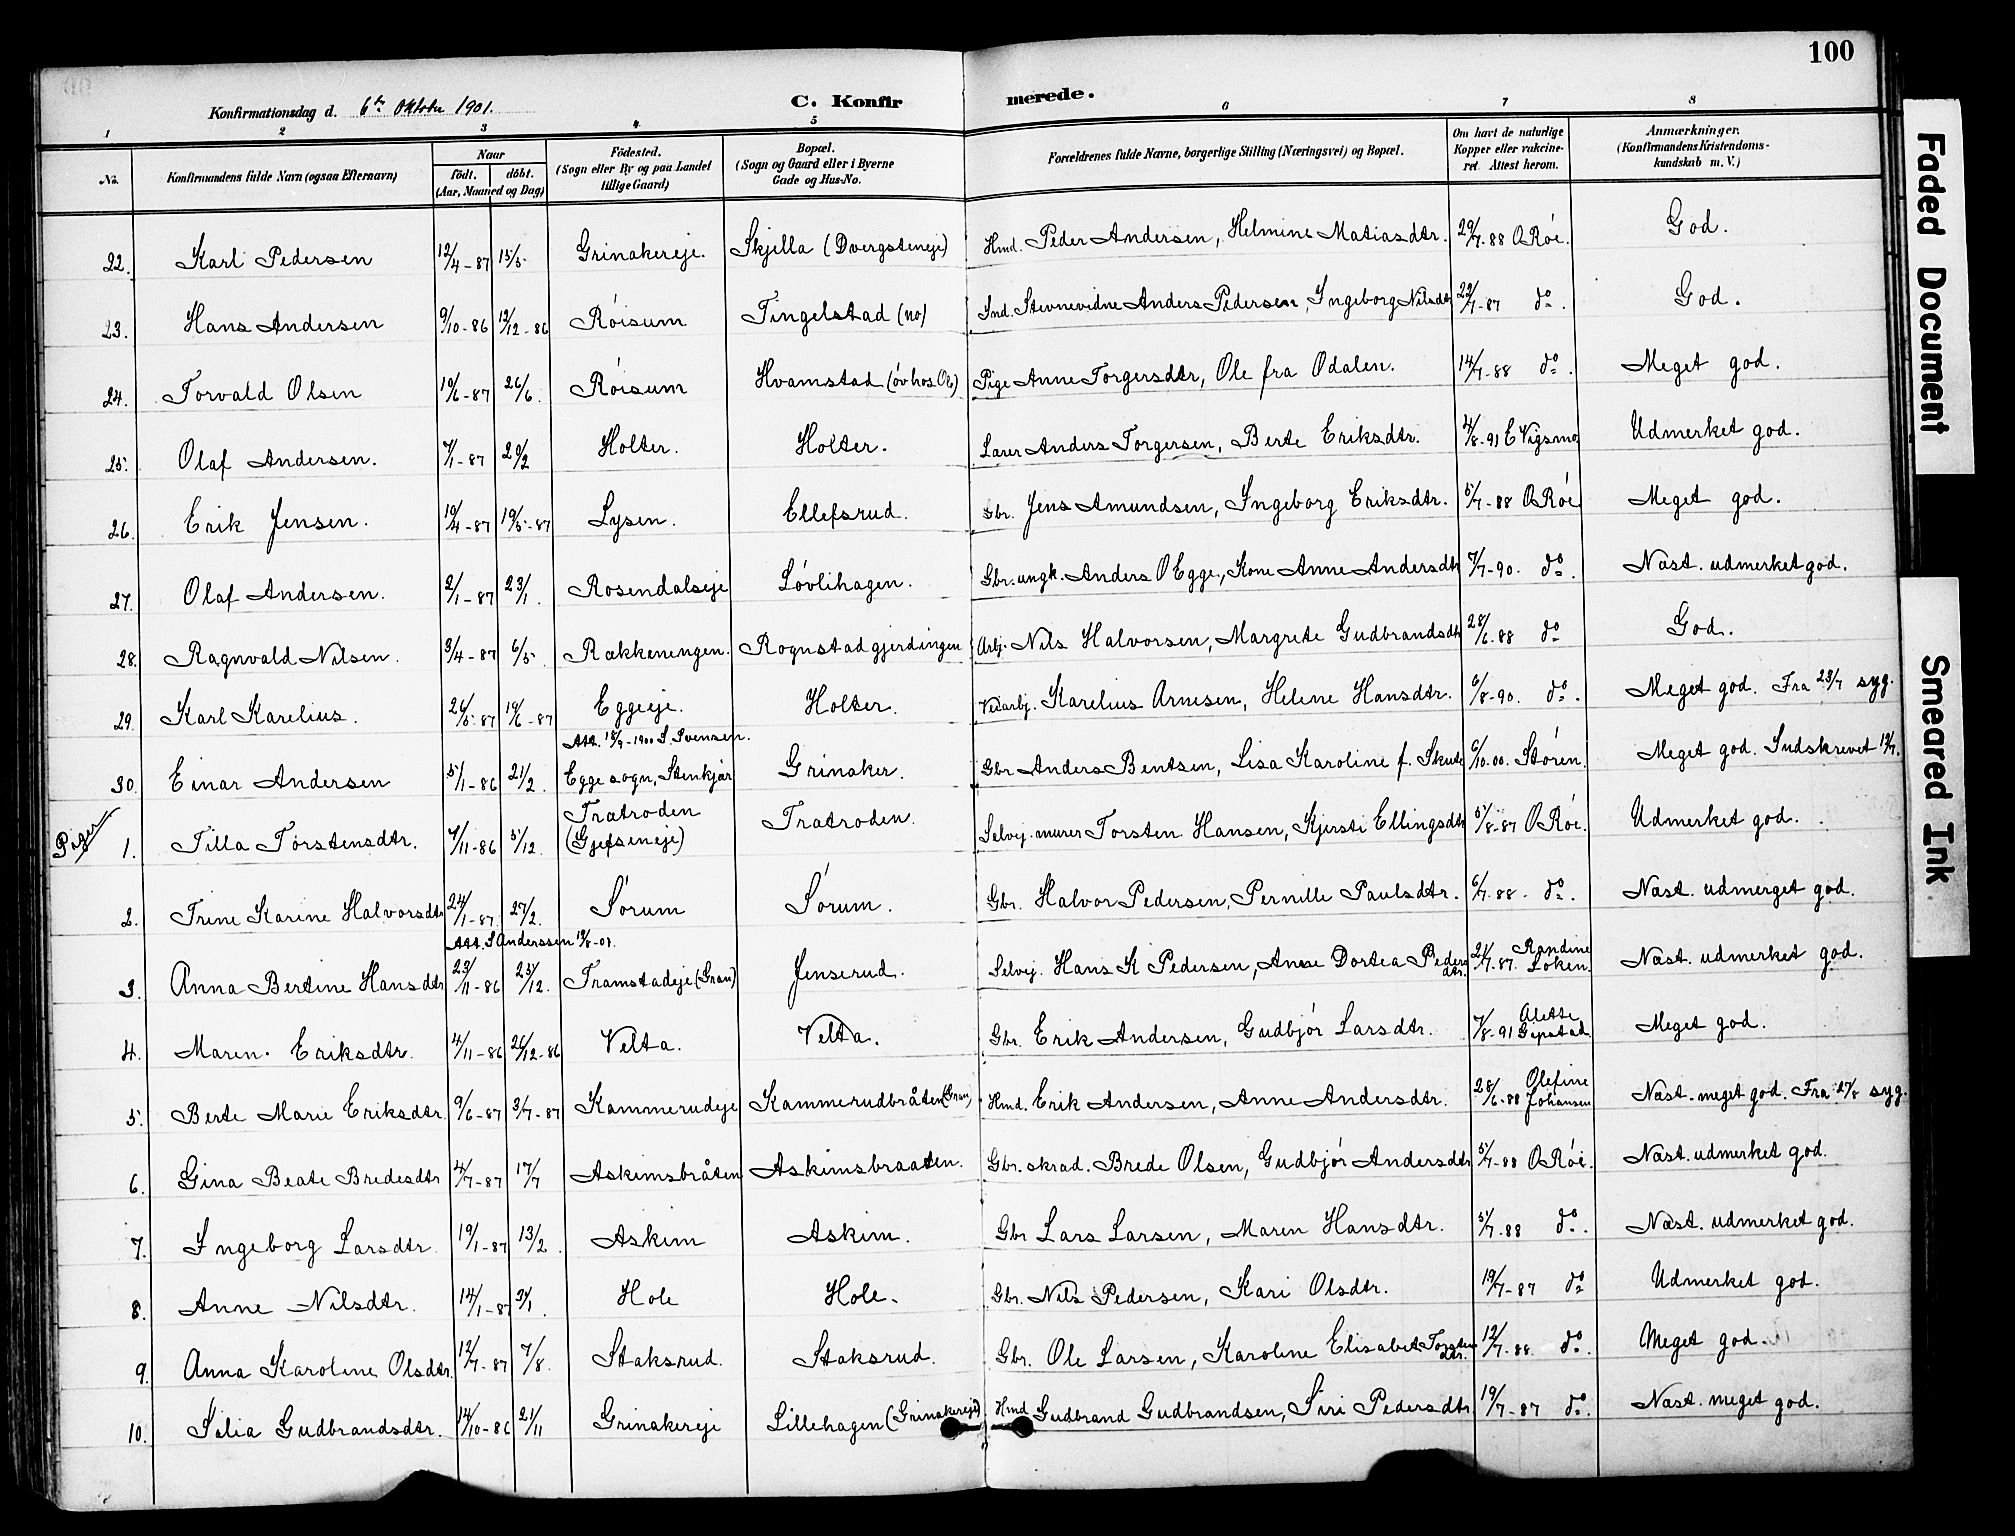 100
Konfirmationsdag d. 6te Oktober 1901. C. Konfirmerede.
1 2 3 4 5 6 7 8
No. Konfirmandens fulde Navn (ogsaa Efternavn) Naar født. døbt. (Aar, Maaned og Dag) Fødested. (Sogn eller By og paa Landet tillige Gaard) Bopæl. (Sogn og Gaard eller i Byerne Gade og Hus-No. Forældrenes fulde Navne, borgerlige Stilling (Næringsvei) og Bopæl. Om havt de naturlige Kopper eller vakcineret. Attest herom. Anmærkninger. (Konfirmandens Kristendomskundskab m. V.)
22. Karl Pedersen 12/4-87 15/5 Grinakereje. Skjilla (Dvergsteneje) Hmd. Peder Andersen, Helmine Matiasdtr. 29/7-88 O Røe. God.
23. Hans Andersen 9/10-86 12/12-86 Røisum Tingelstad (no) Ind. Stevnevidne Anders Pedersen, Ingeborg Nilsdtr 22/7-87 do. God.
24. Torvald Olsen 10/6-87 26/6. Røisum Hvamstad (øv hos Ole) Pige Anne Torgersdtr, Ole fra Odalen. 14/7-88 do. Meget god.
25. Olaf Andersen. 7/1-87 20/2 Holter. Holter. Lærer Anders Torgersen, Berte Eriksdtr. 4/8-91 E Vigsmo Udmerket god.
26. Erik Jensen. 10/4-87 19/5-87 Lysen. Ellefsrud. Gbr. Jens Amundsen, Ingeborg Eriksdtr. 5/7-88 O Røe Meget god.
27. Olaf Andersen. 2/1-87 23/1. Rosendalseje Løvlihagen. Gbr. ungk. Anders O Egge, Kone Anne Andersdtr 7/7-90. do. Næst. udmerket god.
28. Ragnvald Nilsen. 3/4-87 6/5. Rækkenengen. Rognstadgjerdingen Arbj. Nils Halvorsen, Margrete Gudbrandsdtr 28/6-88 do God.
29. Karl Karelius. 26/5-87 19/6-87 Eggeeje. Holter. Veiarbj. Karelius Arnesen, Helene Hansdtr. 6/8-90. do. Meget god. Fra 23/7 syg.
Att. 18/9-1900 S. Svensen.
30. Einar Andersen 5/1-86 21/2. Egge sogn, Stenkjær Grinaker. Gbr Anders Bentsen, Lisa Karoline f. Skute 6/10.00. Støren. Meget god. Indskrevet 12/7.
Piger
1. Tilla Torstensdtr. 7/11-86 5/12. Trætroden (Gjefseneje) Trætroden. Selvej. murer Torsten Hansen, Kjersti Ellingsdtr 5/8-87 O Røe. Udmerket god.
2. Trine Karine Halvorsdtr 24/1-87 27/2. Sørum Sørum. Gbr. Halvor Pedersen, Pernille Paulsdtr. 6/7-88. do. Næst. udmerget god.
Att. S Anderssen 12/8-01.
3. Anna Bertine Hansdtr 23/11-86 25/12. Tramstadeje (Gran) Jenserud. Selvej. Hans K Pedersen, Anne Dortea Pedersdtr. 21/7.87. Randine Løken. Næst. udmerket god.
4. Maren Eriksdtr. 4/11-86 26/12-86 Velta. Velta. Gbr. Erik Andersen, Gudbjør Larsdtr. 7/8-91 Alette Meget god.
5. Berte Marie Eriksdtr. 9/6-87 3/7-87 Kammerudeje Kammerudbråten (Gran) Hmd. Erik Andersen, Anne Andersdtr. 28/6-88 Olefine Johansen Næst. meget god. Fra 27/8 syg.
6. Gina Beate Bredesdtr 4/7-87 17/7 Askimsbråten Askimsbraaten. Gbr. skrad. Brede Olsen, Gudbjør Andersdtr 5/7-88 O Røe. Næst. udmerket god.
7. Ingeborg Larsdtr. 19/1-87 13/2. Askim Askim. Gbr Lars Larsen, Maren Hansdtr. 5/7-88 do. Næst. udmerket god.
8. Anne Nilsdtr. 14/1-87 31/1. Hole Hole. Gbr. Nils Pedersen, Kari Olsdtr. 19/7-87 do Udmerket god.
9. Anna Karoline Olsdtr. 12/7-87 7/8. Staksrud. Staksrud. Gbr. Ole Larsen, Karoline Elisabet Torstensdtr. 12/7-88. do. Meget god.
10. Silia Gudbrandsdtr. 14/10-86 21/11 Grinakereje Lillehagen (Grinakereje) Hmd. Gudbrand Gudbrandsen, Siri Pedersdtr. 19/7-87 do. Næst. meget god.
Faded Document
Smeared Ink